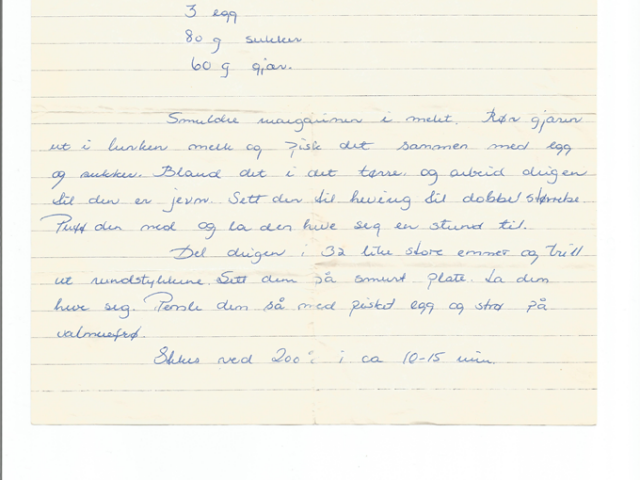 3 egg
80 g sukker
60 g gjær.
Smuldre margarinen i melet. Rør gjæren
ut i lunken melk og pisk det sammen med egg
og sukker. Bland det i det tørre og arbeid deigen
til den er jevn. Sett den til heving til dobbel størrelse.
den ned og la den heve seg en stund til.
Del deigen i 32 like store emner og trill
ut rundstykkene. Sett dem på smurt plate. La dem
heve seg. Pensle dem så med pisket egg og strø på
valmuefrø.
Stekes ved 200°C i ca 10-15 min.